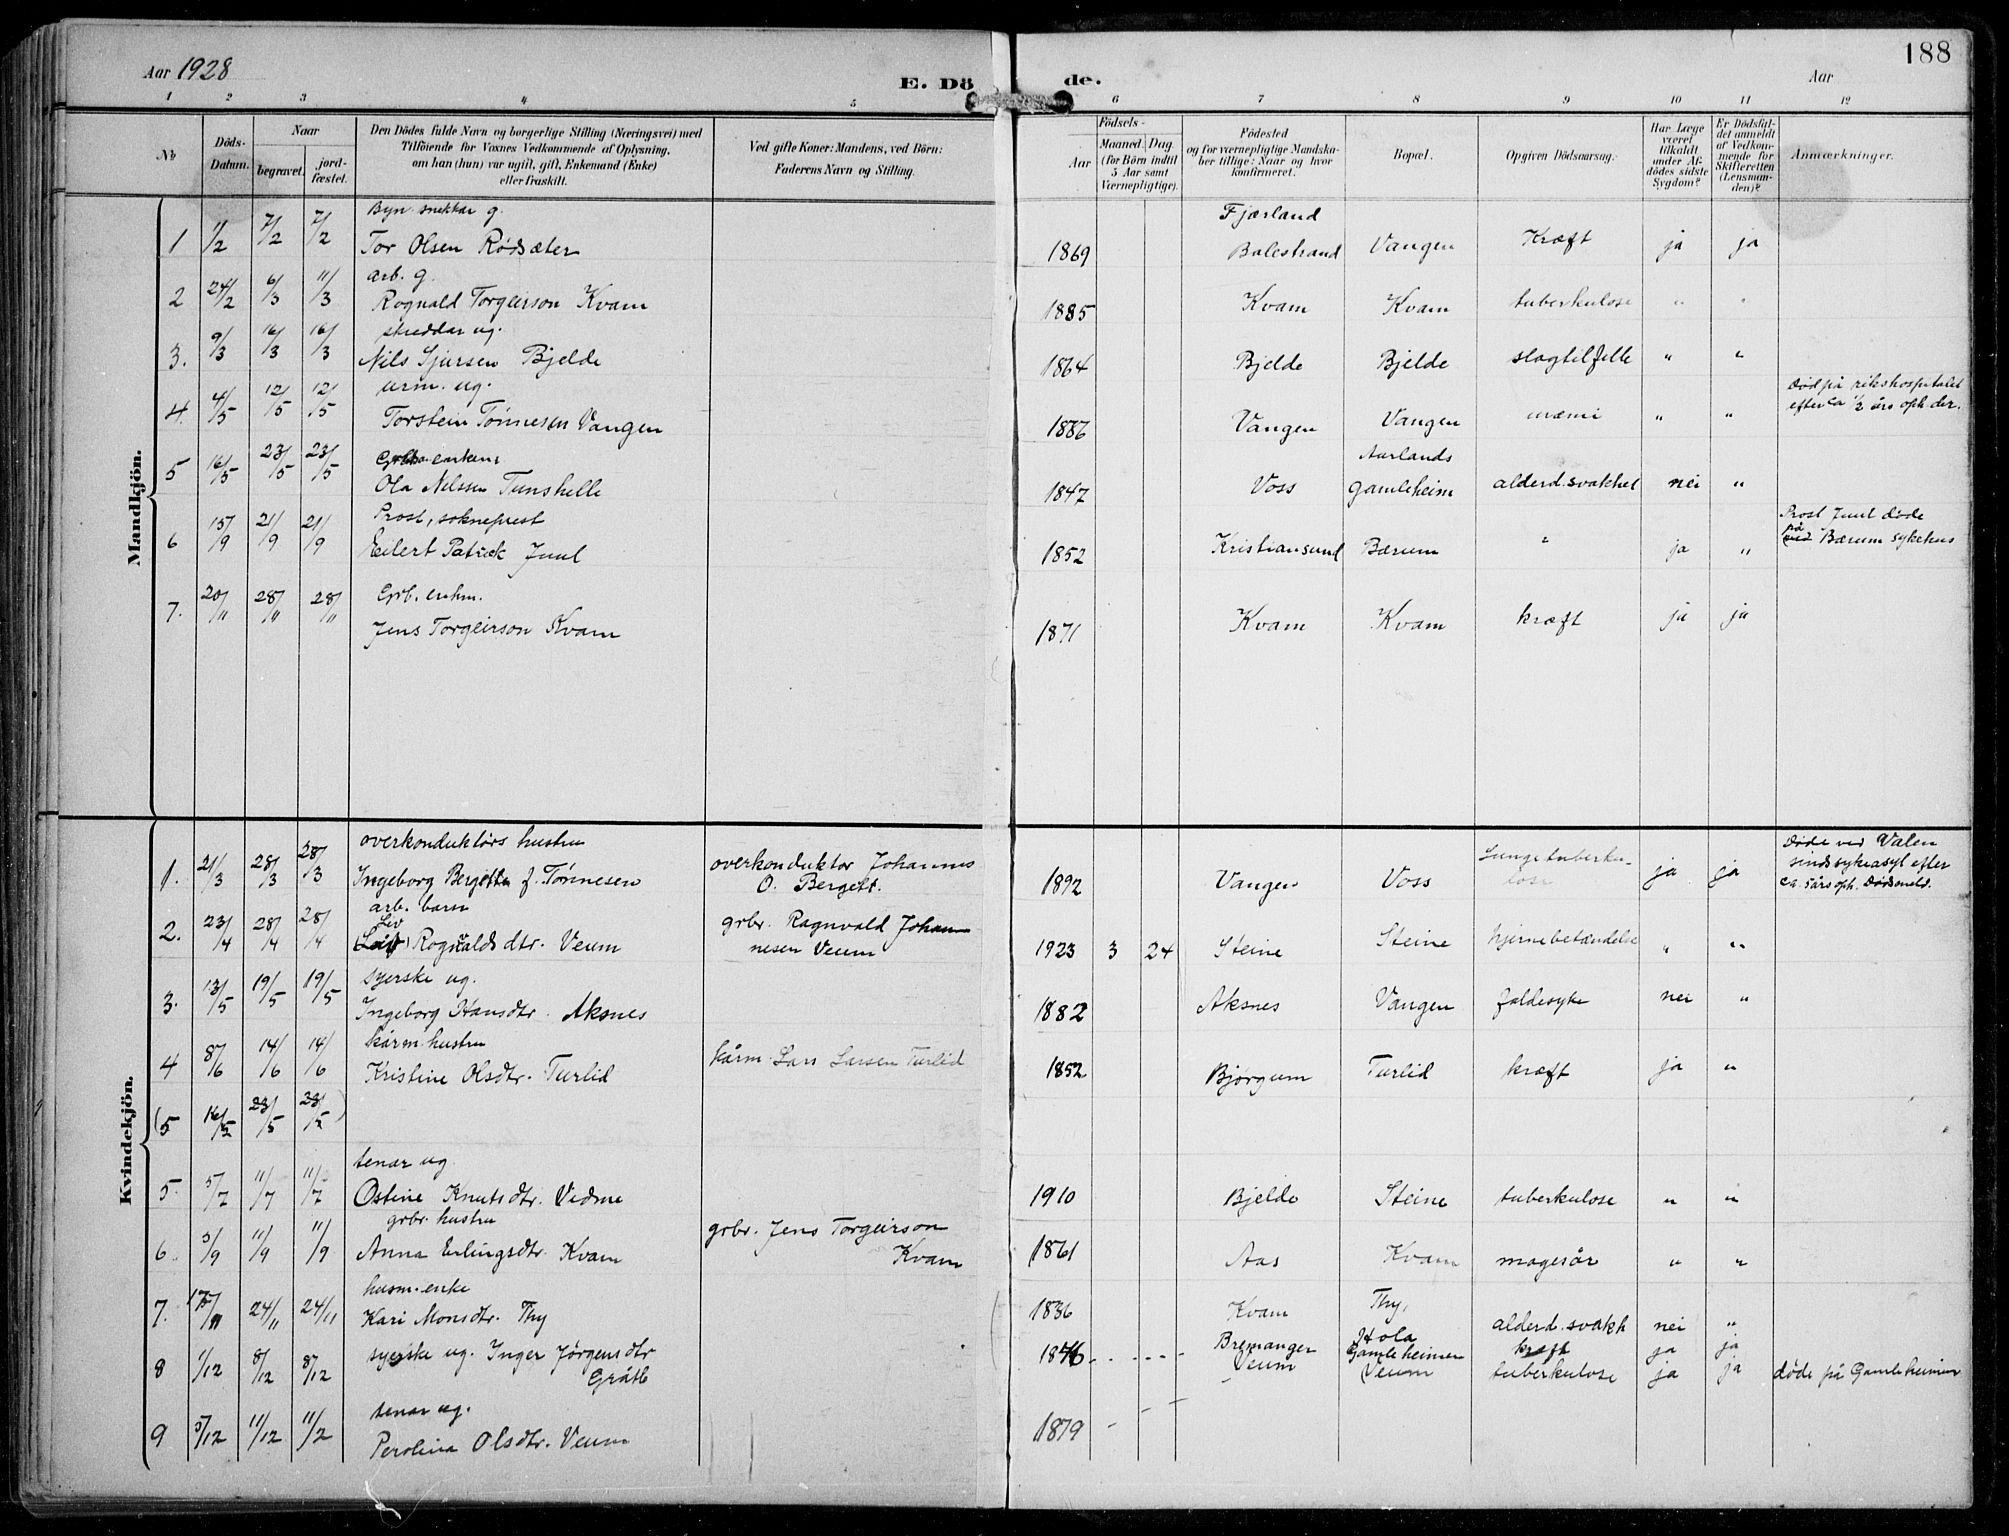 Aar 1928
E. Dö de.
Aar
188
1 2 3 4 5 6 7 8 9 10 11 12
No
Döds-Datum.
Naar
begravet.
jord-fæstet.
Den Dödes fulde Navn og borgerlige Stilling (Næringsvei) med
Tilföiende for Voxnes Vedkommende af Oplysning,
om han (hun) var ugift, gift, Enkemand (Enke)
eller fraskilt.
Ved gifte Koner: Mandens, ved Börn:
Faderens Navn og Stilling.
Födsels-
Aar
Maaned. Dag.
(for Börn indtil
5 Aar samt
Værnepligtige).
Födested
og for værnepligtige Mandska-
ber tillige: Naar og hvor
konfirmeret.
Bopæl.
Opgiven Dödsaarsag.
Har Læge
været
tilkaldt
under Af-
dödes sidste
Sygdom?
Er Dödsfal-
det anmeldt
af Vedkom-
mende for
Skifteretten
(Lensman-
den)?
Anmærkninger.
Mandkjön.
Byn. snekkar g. Fjærland
1 1/2 7/2 7/2 Tor Olsen Rødsæter 1869 Balestrand Vangen Kræft ja ja
arb. g.
2 24/2 6/3 11/3 Rognald Torgeirson Kvam 1885 Kvam Kvam tuberkulose " "
skreddar ug.
3. 9/3 16/3 16/3 Nils Sjursen Bjelde 1864 Bjelde Bjelde slagtilfelle " "
urm. ug. Død på rikshospitalet
4. 4/5 12/5 12/5 Torstein Tønnesen Vangen 1886 Vangen Vangen uræmi " " efter ca 1/2 års oph. der.
enkem. Aurlands
5 16/5 23/5 23/5 Ola Nilssen Tunshelle 1847 Voss gamleheim alderd. svakhet nei "
Prost, sokneprest Prost Juul døde
6 15/9 21/9 21/9 Eilert Patrick Juul 1852 Kristiansund Bærum " ja " på Bærum sykehus
Grb. enkm.
7. 20/11 28/11 28/11 Jens Torgeirson Kvam 1871 Kvam Kvam kræft ja ja
Kvindekjön.
overkonduktørs hustru Døde ved Valen
1. 21/3 28/3 28/3 Ingeborg Bergette f. Tønnesen overkonduktor Johannes O. Bergett. 1892 Vangen Voss Lungetuberkulose ja ja sindssykeasyl efter
ca. 5 års oph. Dødsmeld.
arb. barn
2. 23/4 28/4 28/4 Liv Rognvaldsdtr. Veum grbr. Ragnvald Johannesen Veum 1923 3 24 Steine Steine hjernebetændelse " "
syerske ug.
3. 13/5 19/5 19/5 Ingeborg Hansdtr. Aksnes 1882 Aksnes Vangen faldesyke nei "
kårm. hustru
4 8/6 14/6 14/6 Kristine Olsdtr. Turlid kårm. Lars Larsen Turlid 1852 Bjørgum Turlid kræft ja "
(5 16/5 23/5 23/5)
tenar ug
5. 5/7 11/7 11/7 Ostine Knutsdtr. Vidme 1910 Bjelde Steine tuberkulose " "
grbr. hustru
6. 5/9 11/9 11/9 Anna Erlingsdtr. Kvam grbr. Jens Torgeirson Kvam 1861 Aas Kvam magesår " "
husm. enke
7. 17/11 24/11 24/11 Kari Monsdtr. Thy 1836 Kvam Thy, alderd. svakh nei "
syerske ug. Inger Jørgensdtr
8 1/12 8/12 8/12 1846 Bremanger Hola Gamleheimen kræft ja ja
Veum Veum tuberkulose ja ja døde på Gamleheimen
tenar ug.
9 5/12 11/12 11/2 Perolina Olsdtr. Veum 1879